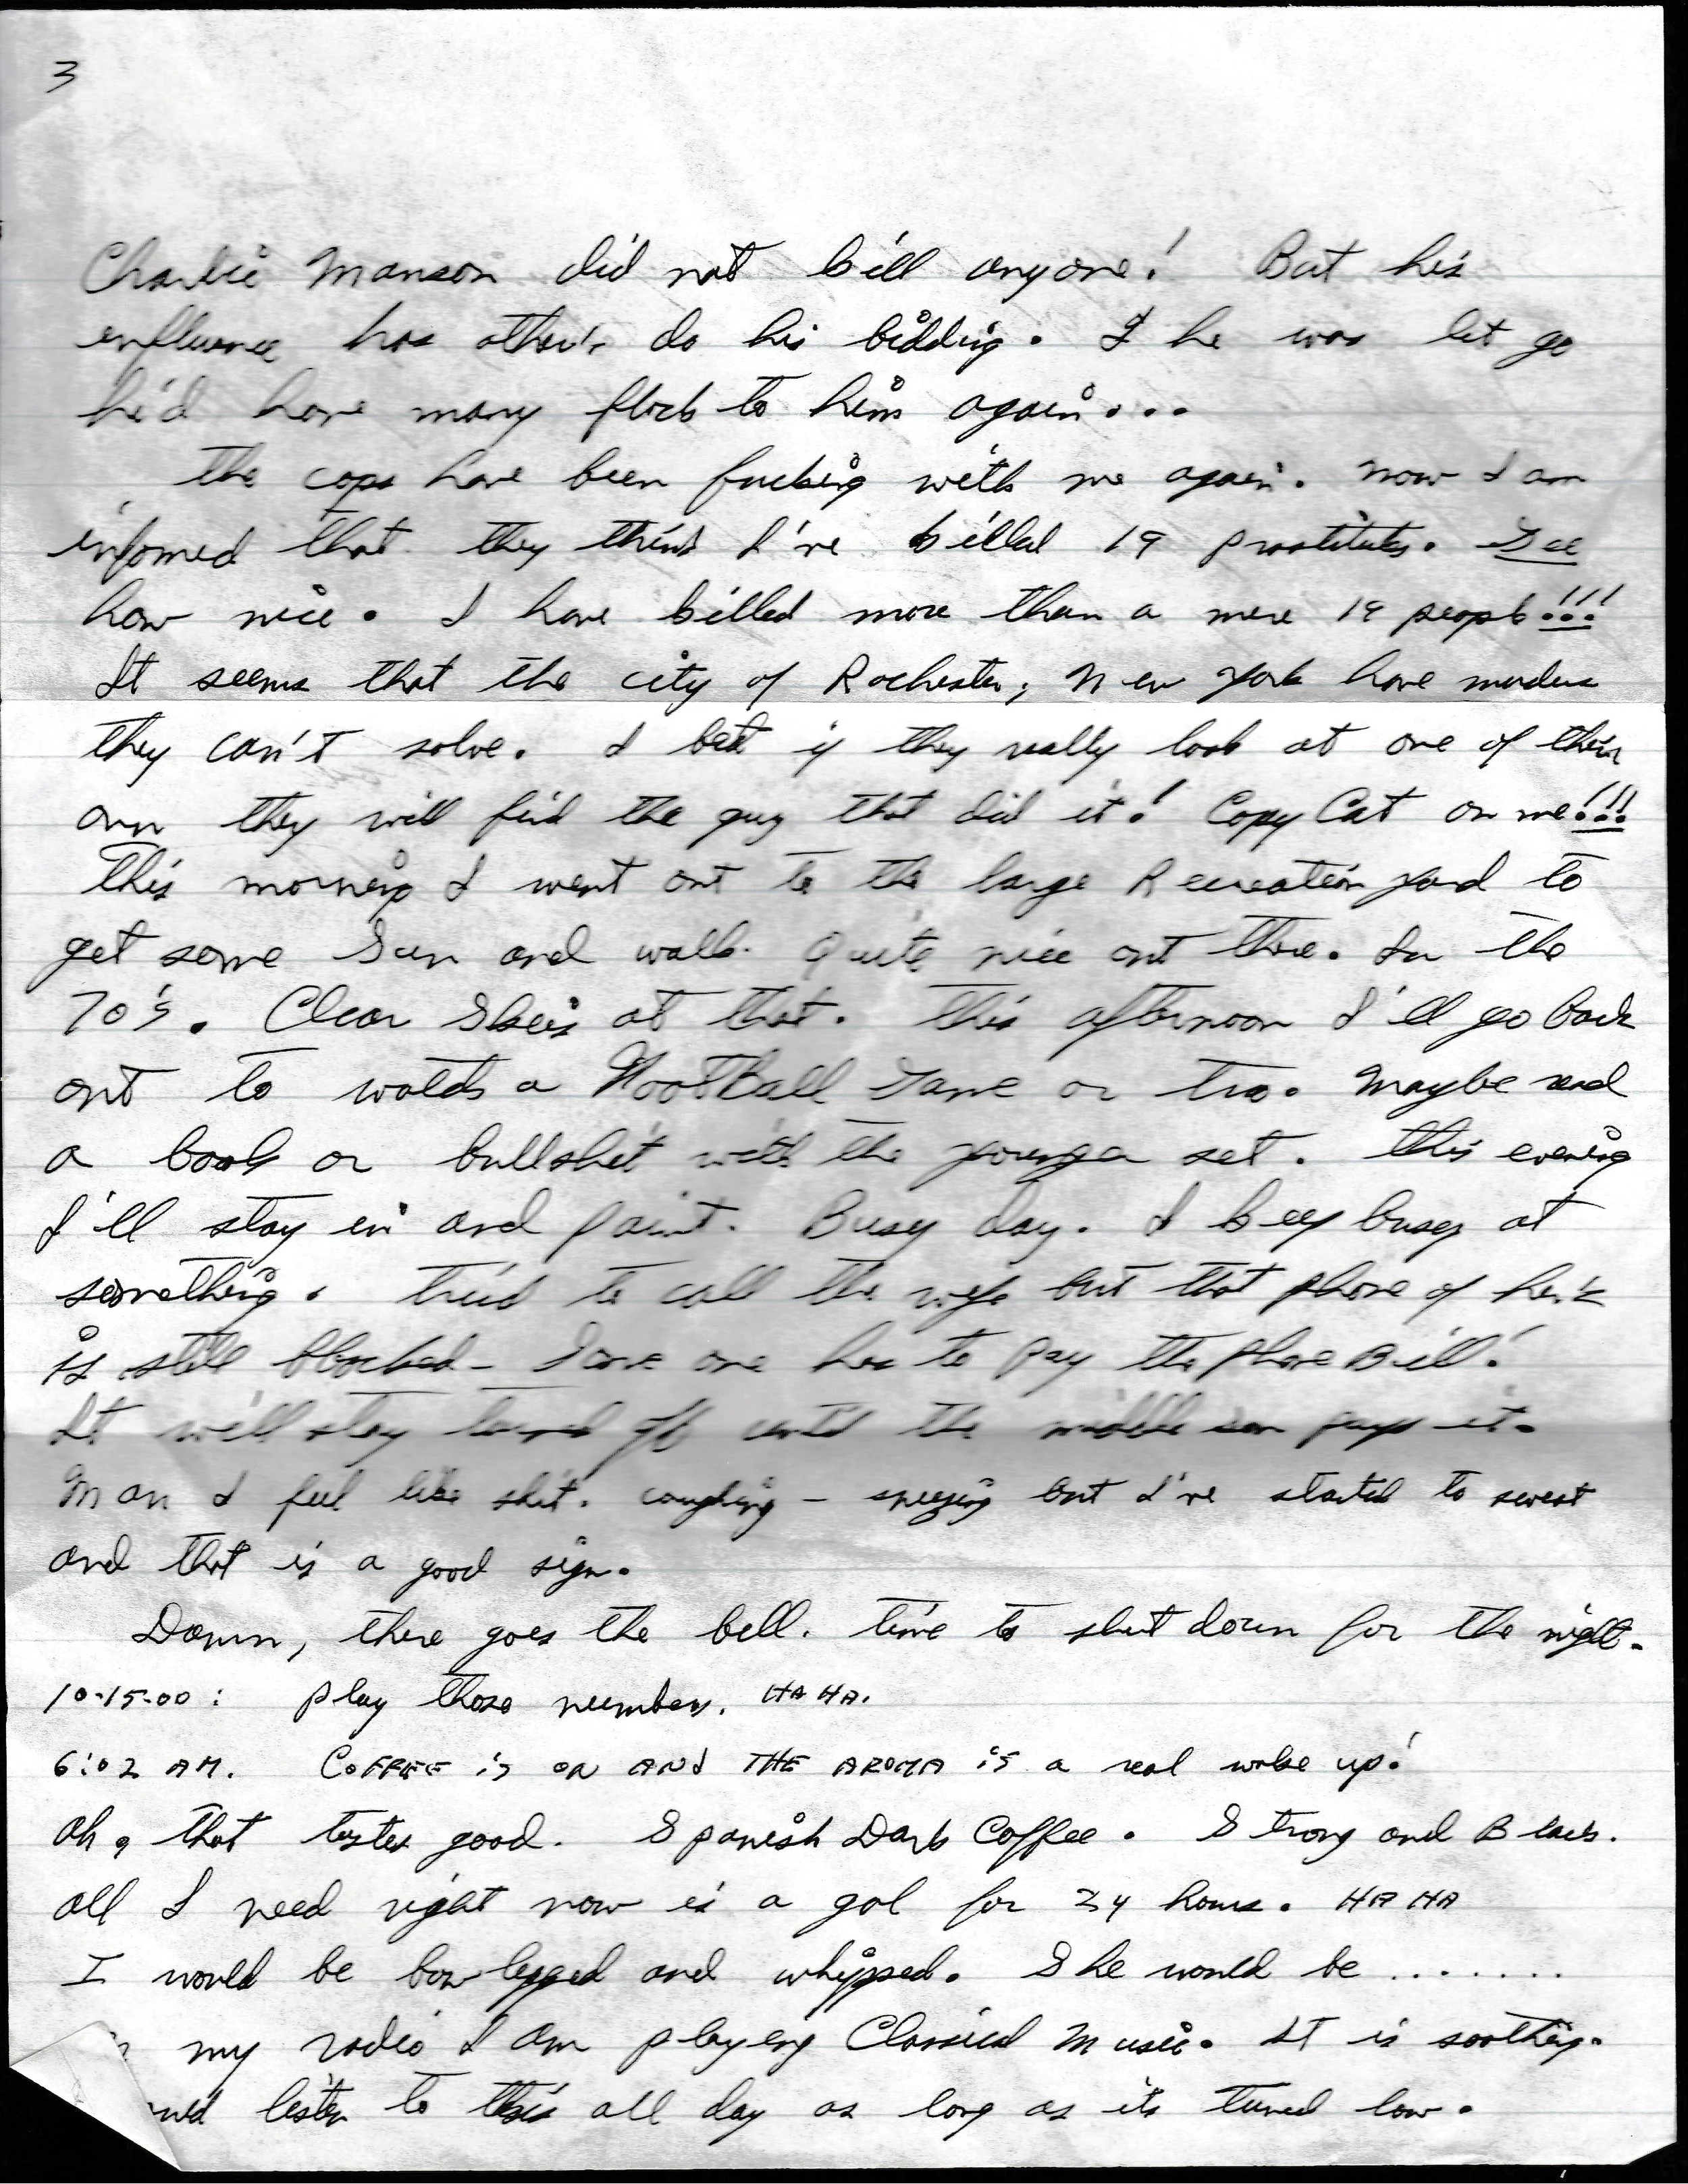 3
Charlie Manson did not kill anyone! But his
influence has other's do his bidding. If he was let go
he'd have many flock to him again...
The cops have been fucking with me again. Now I am
infomed that they think I've killed 19 prostitutes. Gee
how nice. I have killed more than a mere 19 people!!!
It seems that the city of Rochester, New York have murders
they can't solve. I bet if they really look at one of their
own they will find the guy that did it! Copy Cat on me!!!
This morning I went out to the large Recreation yard to
get some Sun and walk. Quite nice out there. In the
70's. Clear Skies at that. This afternoon I'll go back
out to watch a FootBall Game or two. Maybe read
a book or bullshit with the younger set. This evening
I'll stay in and paint. Busy day. I keep busy at
something. Tried to call the wife but that phone of her's
is still blocked - Some one has to pay the phone Bill!
It will stay turned off until the middle son pays it.
Man I feel like shit. coughing - sneezing but I've started to sweat
and that is a good sign.
Damn, there goes the bell. Time to shut down for the night.
10-15-00: Play those numbers. HA HA.
6:02 AM. COFFEE is ON AND THE AROMA is a real wake up!
Oh, that tastes good. Spanish Dark Coffee. Strong and Black.
All I need right now is a gal for 24 hours. HA HA
I would be bow legged and whipped. She would be .......
my radio I am playing Classical Music. It is soothing.
listen to this all day as long as its tuned low.